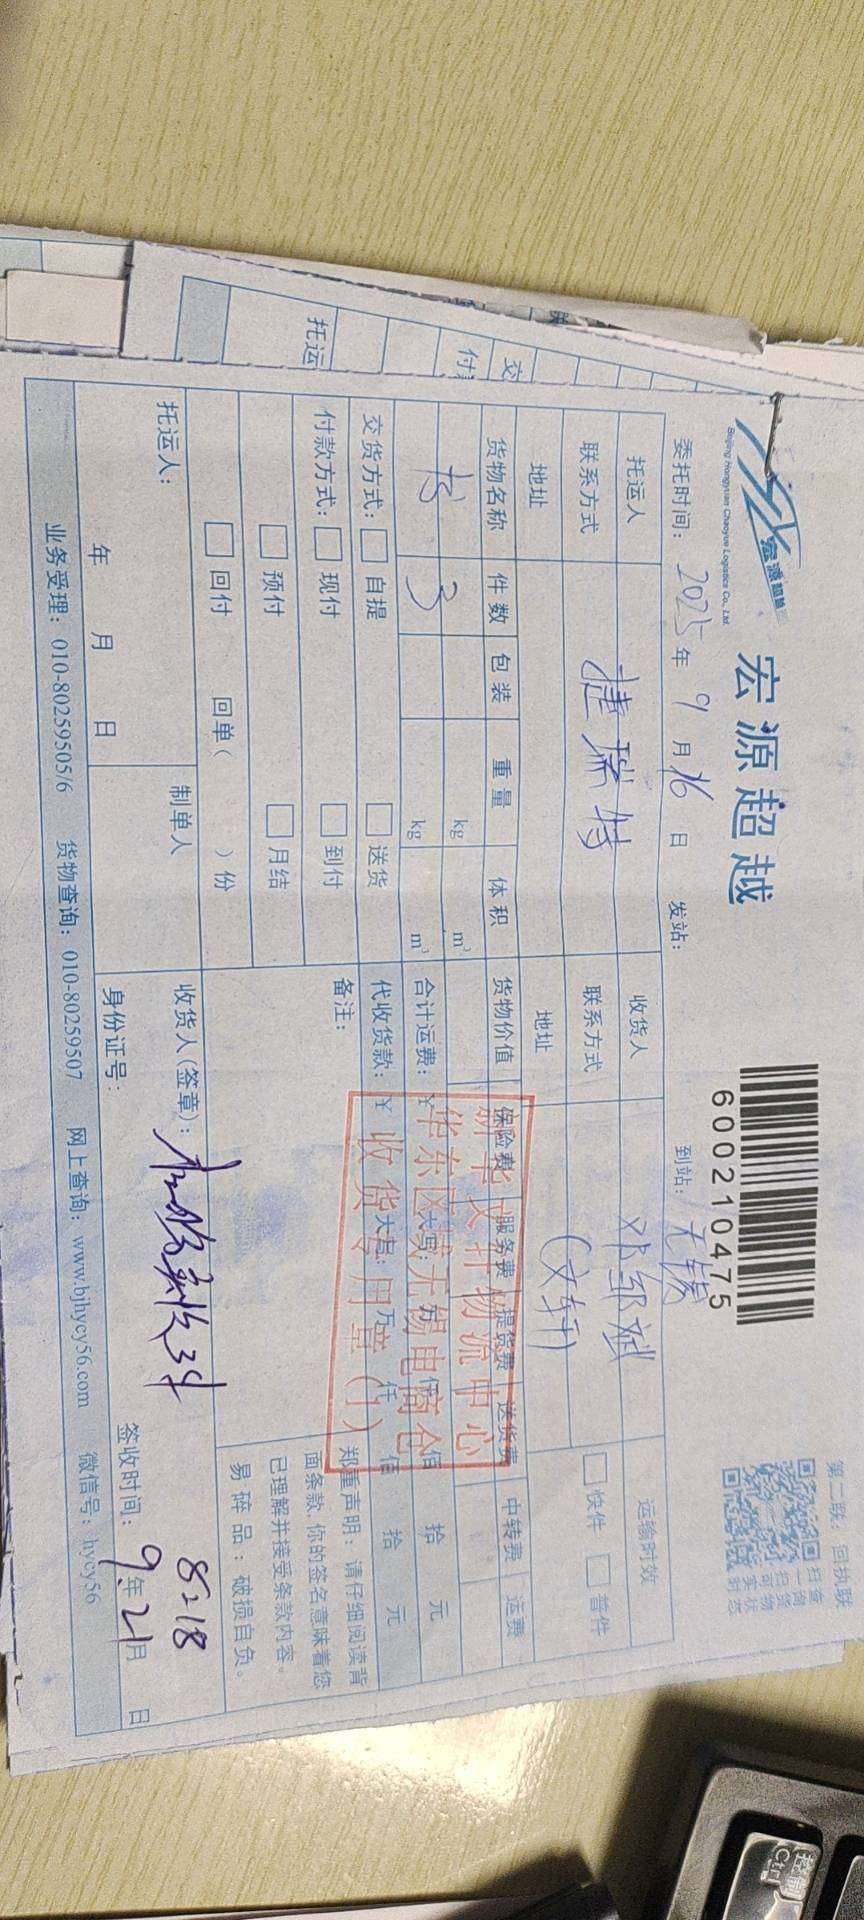 宏源超越
Beijing Hongyuan Chaoyue Logistics Co., Ltd.
宏源超越
600210475
第二联：回执联
扫一扫 可实时
查询货物状态
委托时间：2025年9月16日 发站： 到站：无锡
托运人 捷瑞特 收货人 邓邹斌 运输时效
联系方式 联系方式 （文轩） 快件 普件
地址 地址
货物名称 件数 包装 重量 体积 货物价值 保险费 服务费 提货费 送货费 中转费 运费
kg m³
书 3 kg m³ 合计运费：¥ 大写： 万 仟 佰 拾 元
交货方式： 自提 送货 代收货款：¥ 大写： 万 仟 佰 拾 元
付款方式： 现付 到付 备注：
预付 月结
回付 回单（ ）份
郑重声明：请仔细阅读背
面条款，你的签名意味着您
已理解并接受条款内容。
易碎品：破损自负。
新华文轩物流中心
华东区域无锡电商仓
收货专用章（1）
托运人： 制单人 收货人（签章）： 实收3件 8218
年 月 日 身份证号： 签收时间：9年21月 日
业务受理：010-80259505/6 货物查询：010-80259507 网上查询：www.bjhycy56.com 微信号：hycy56
托运
付
交
控制
Ctrl